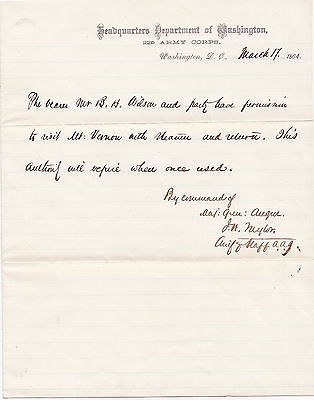 Headquarters Department of Washington,
22D ARMY CORPS,
Washington, D. C. March 17, 1864.
The bearer Mr B. H. Wilson and party have permission
to visit Mt. Vernon with Steamer and return. This
Authority will expire when once used.
By command of
Maj: Gen: Augur.
J. H. Taylor
Chief of Staff A.A.G